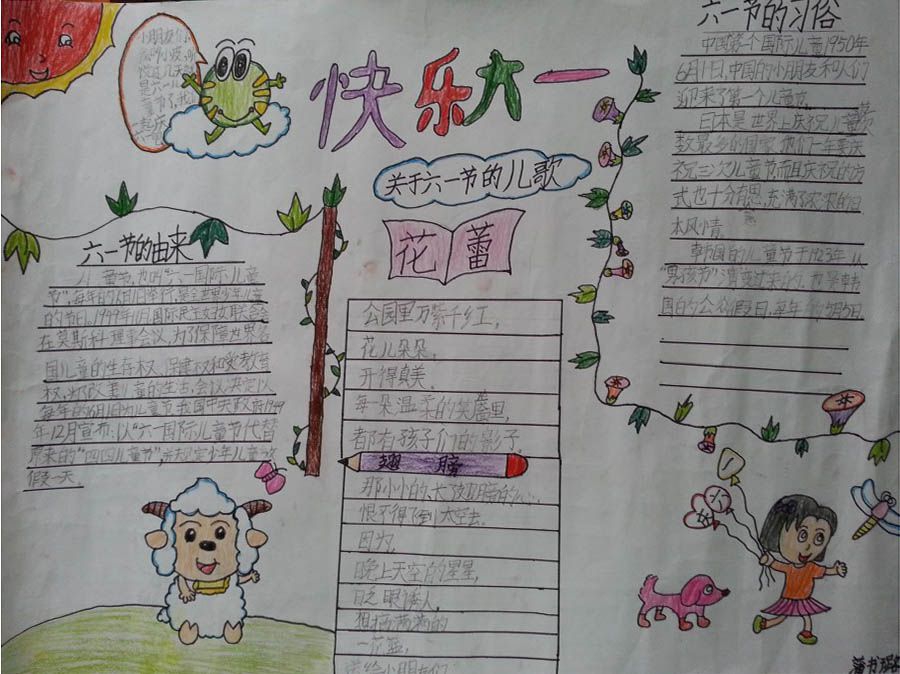 小朋友们
是六一儿
童节了
快乐六一
关于六一节的儿歌
花蕾
公园里万紫千红,
花儿朵朵,
开得真美.
每一朵温柔的笑靥里,
都有孩子们的影子.
翅膀
那小小的、
恨不得飞到太空去.
因为,
晚上天空的星星,
眨眼诱人,
满满的
一花篮,
送给小朋友们
六一节的由来
儿童节,也叫“六一国际儿童
节”,每年的6月1日举行,是全世界少年儿童
的节日,1949年11月,国际民主妇女联合会
在莫斯科理事会议,为了保障世界各
国儿童的生存权、保健权和受教育
权,为改善儿童的生活,会议决定以
每年的6月1日为儿童节.我国中央政府1949
年12月宣布:以“六一国际儿童节代替
原来的“四四儿童节”,并规定少年儿童放
假一天
六一节的习俗
中国第一个国际儿童1950年
6月1日,中国的小朋友和人们
迎来了第一个儿童节.
日本是世界上庆祝儿童节
数最多的国家,他们一年要庆
祝三次儿童节而且庆祝的方
式也十分有意思,充满了浓浓的日
本风情
韩国的儿童节于1923年从
“男孩节”演变过来的,也是韩
国的公众假日,每年的5月5日
六一